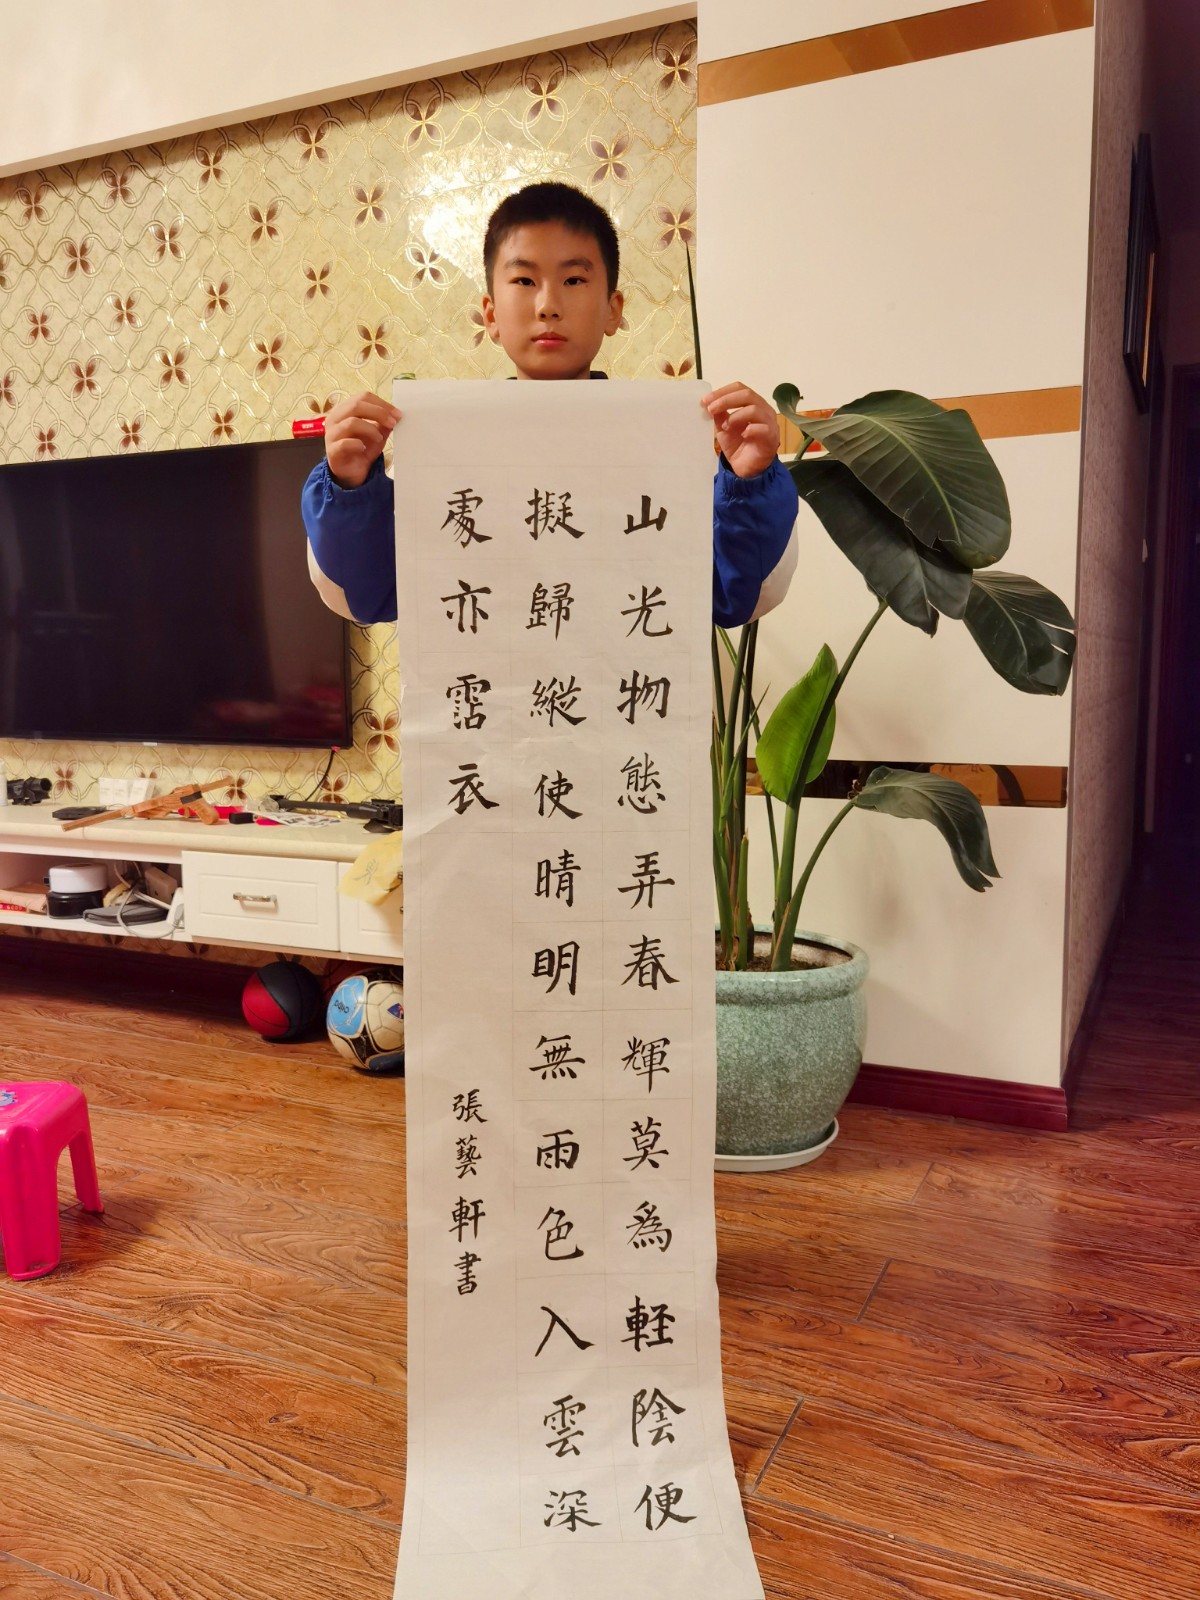 山光物態弄春輝莫為軽陰便
擬歸縱使晴明無雨色入雲深
處亦霑衣
張藝軒書